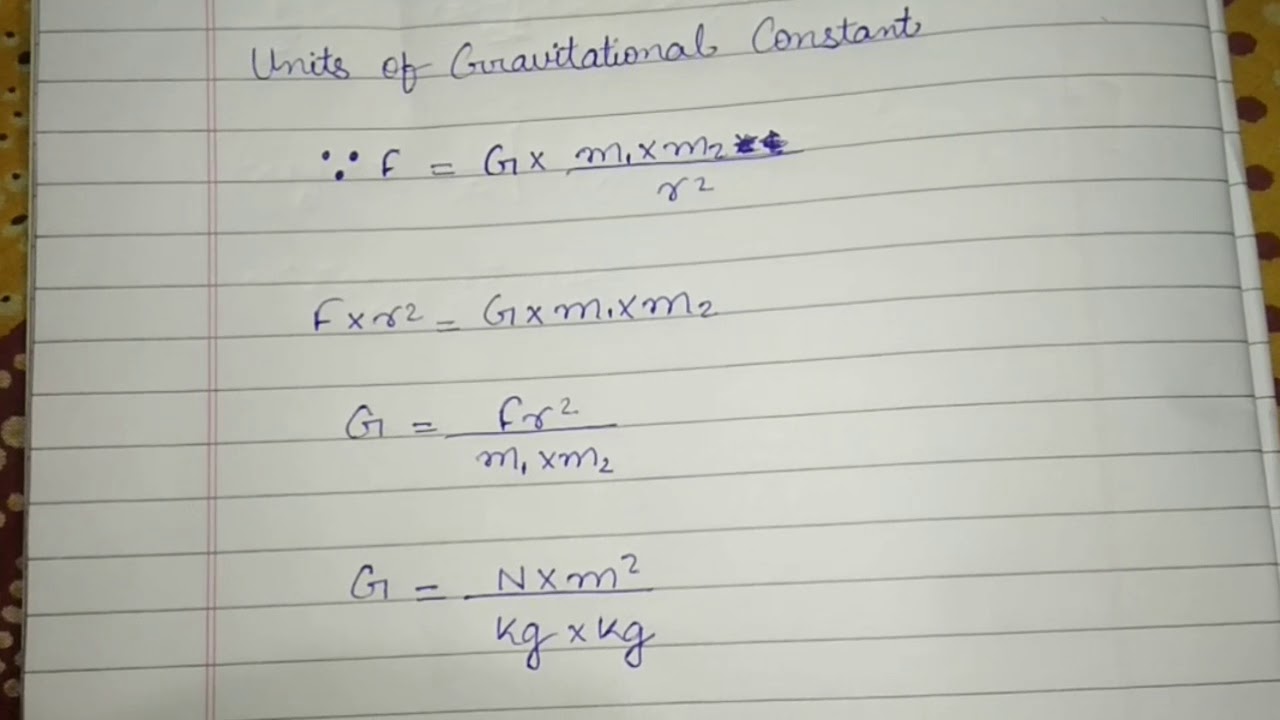 Units of Gravitational Constant
∵ F = G × m₁×m₂ / r²
F×r² = G×m₁×m₂
G = Fr² / m₁×m₂
G = N×m² / kg×kg